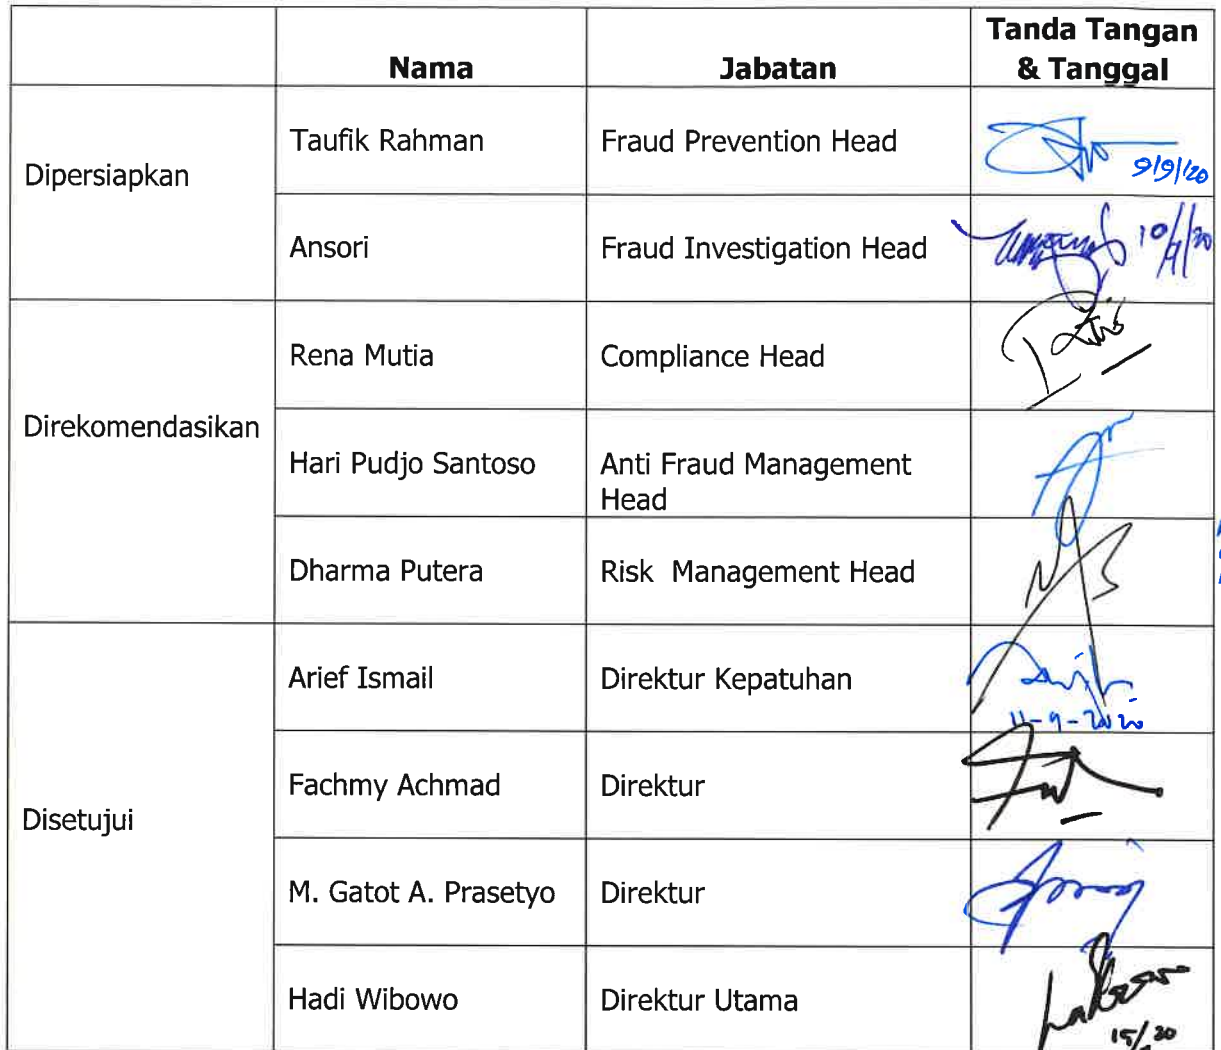 Nama
Jabatan
Tanda Tangan
& Tanggal
Dipersiapkan
Taufik Rahman
Fraud Prevention Head
9/9/20
Ansori
Fraud Investigation Head
10/9/20
Direkomendasikan
Rena Mutia
Compliance Head
Hari Pudjo Santoso
Anti Fraud Management
Head
Dharma Putera
Risk Management Head
Disetujui
Arief Ismail
Direktur Kepatuhan
11-9-2020
Fachmy Achmad
Direktur
M. Gatot A. Prasetyo
Direktur
Hadi Wibowo
Direktur Utama